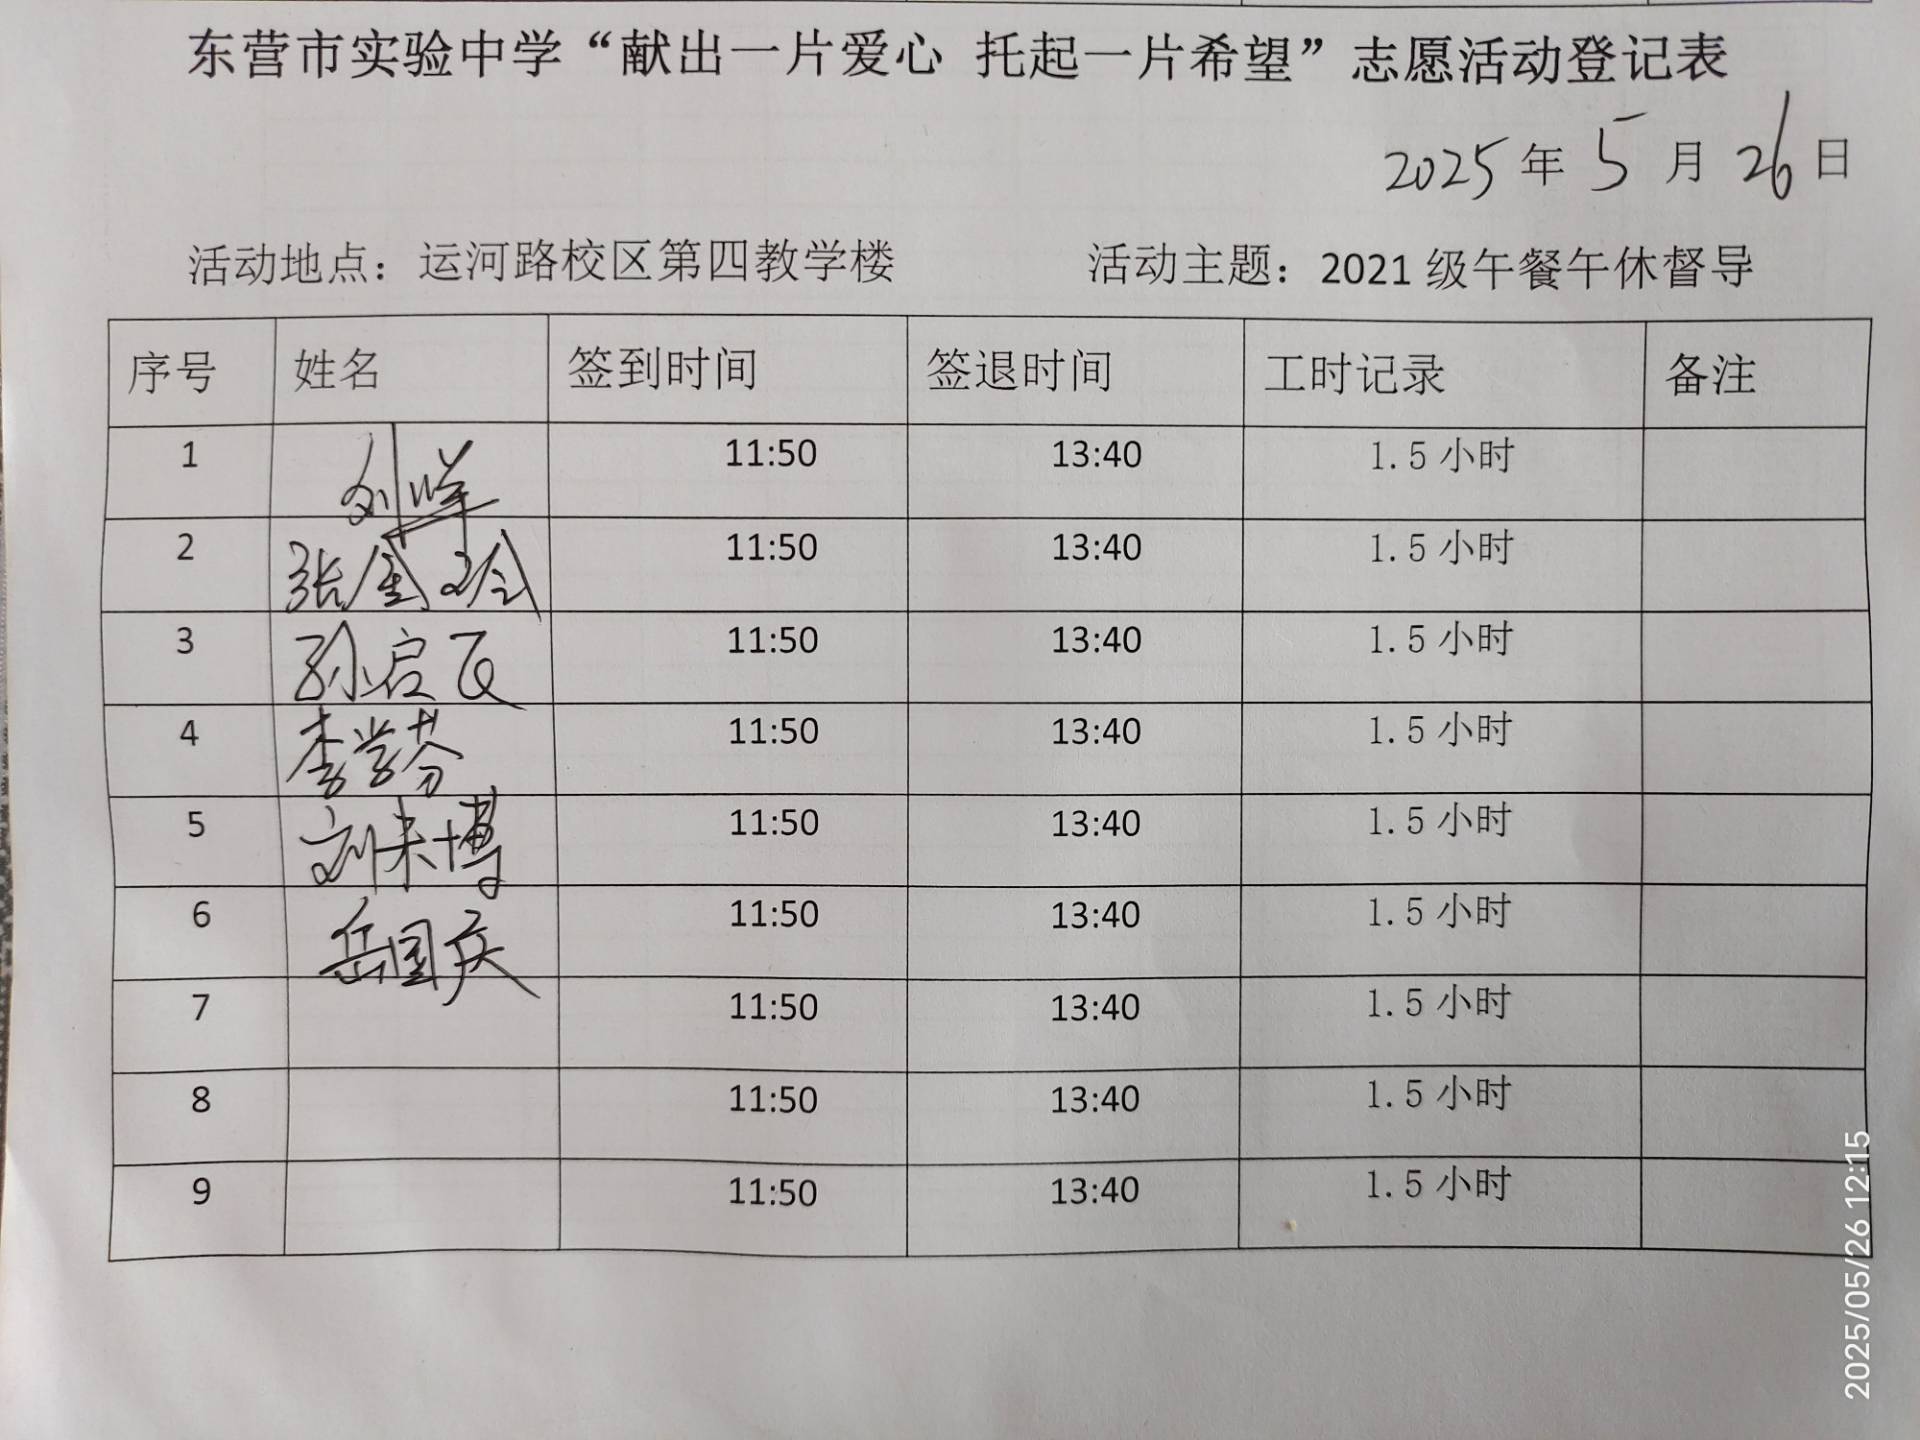 东营市实验中学“献出一片爱心 托起一片希望”志愿活动登记表
2025年5月26日
活动地点：运河路校区第四教学楼 活动主题：2021级午餐午休督导
序号 姓名 签到时间 签退时间 工时记录 备注
1 刘 11:50 13:40 1.5小时
2 张金玲 11:50 13:40 1.5小时
3 孙启 11:50 13:40 1.5小时
4 李学芬 11:50 13:40 1.5小时
5 刘来博 11:50 13:40 1.5小时
6 岳国庆 11:50 13:40 1.5小时
7 11:50 13:40 1.5小时
8 11:50 13:40 1.5小时
9 11:50 13:40 1.5小时
2025/05/26 12:15